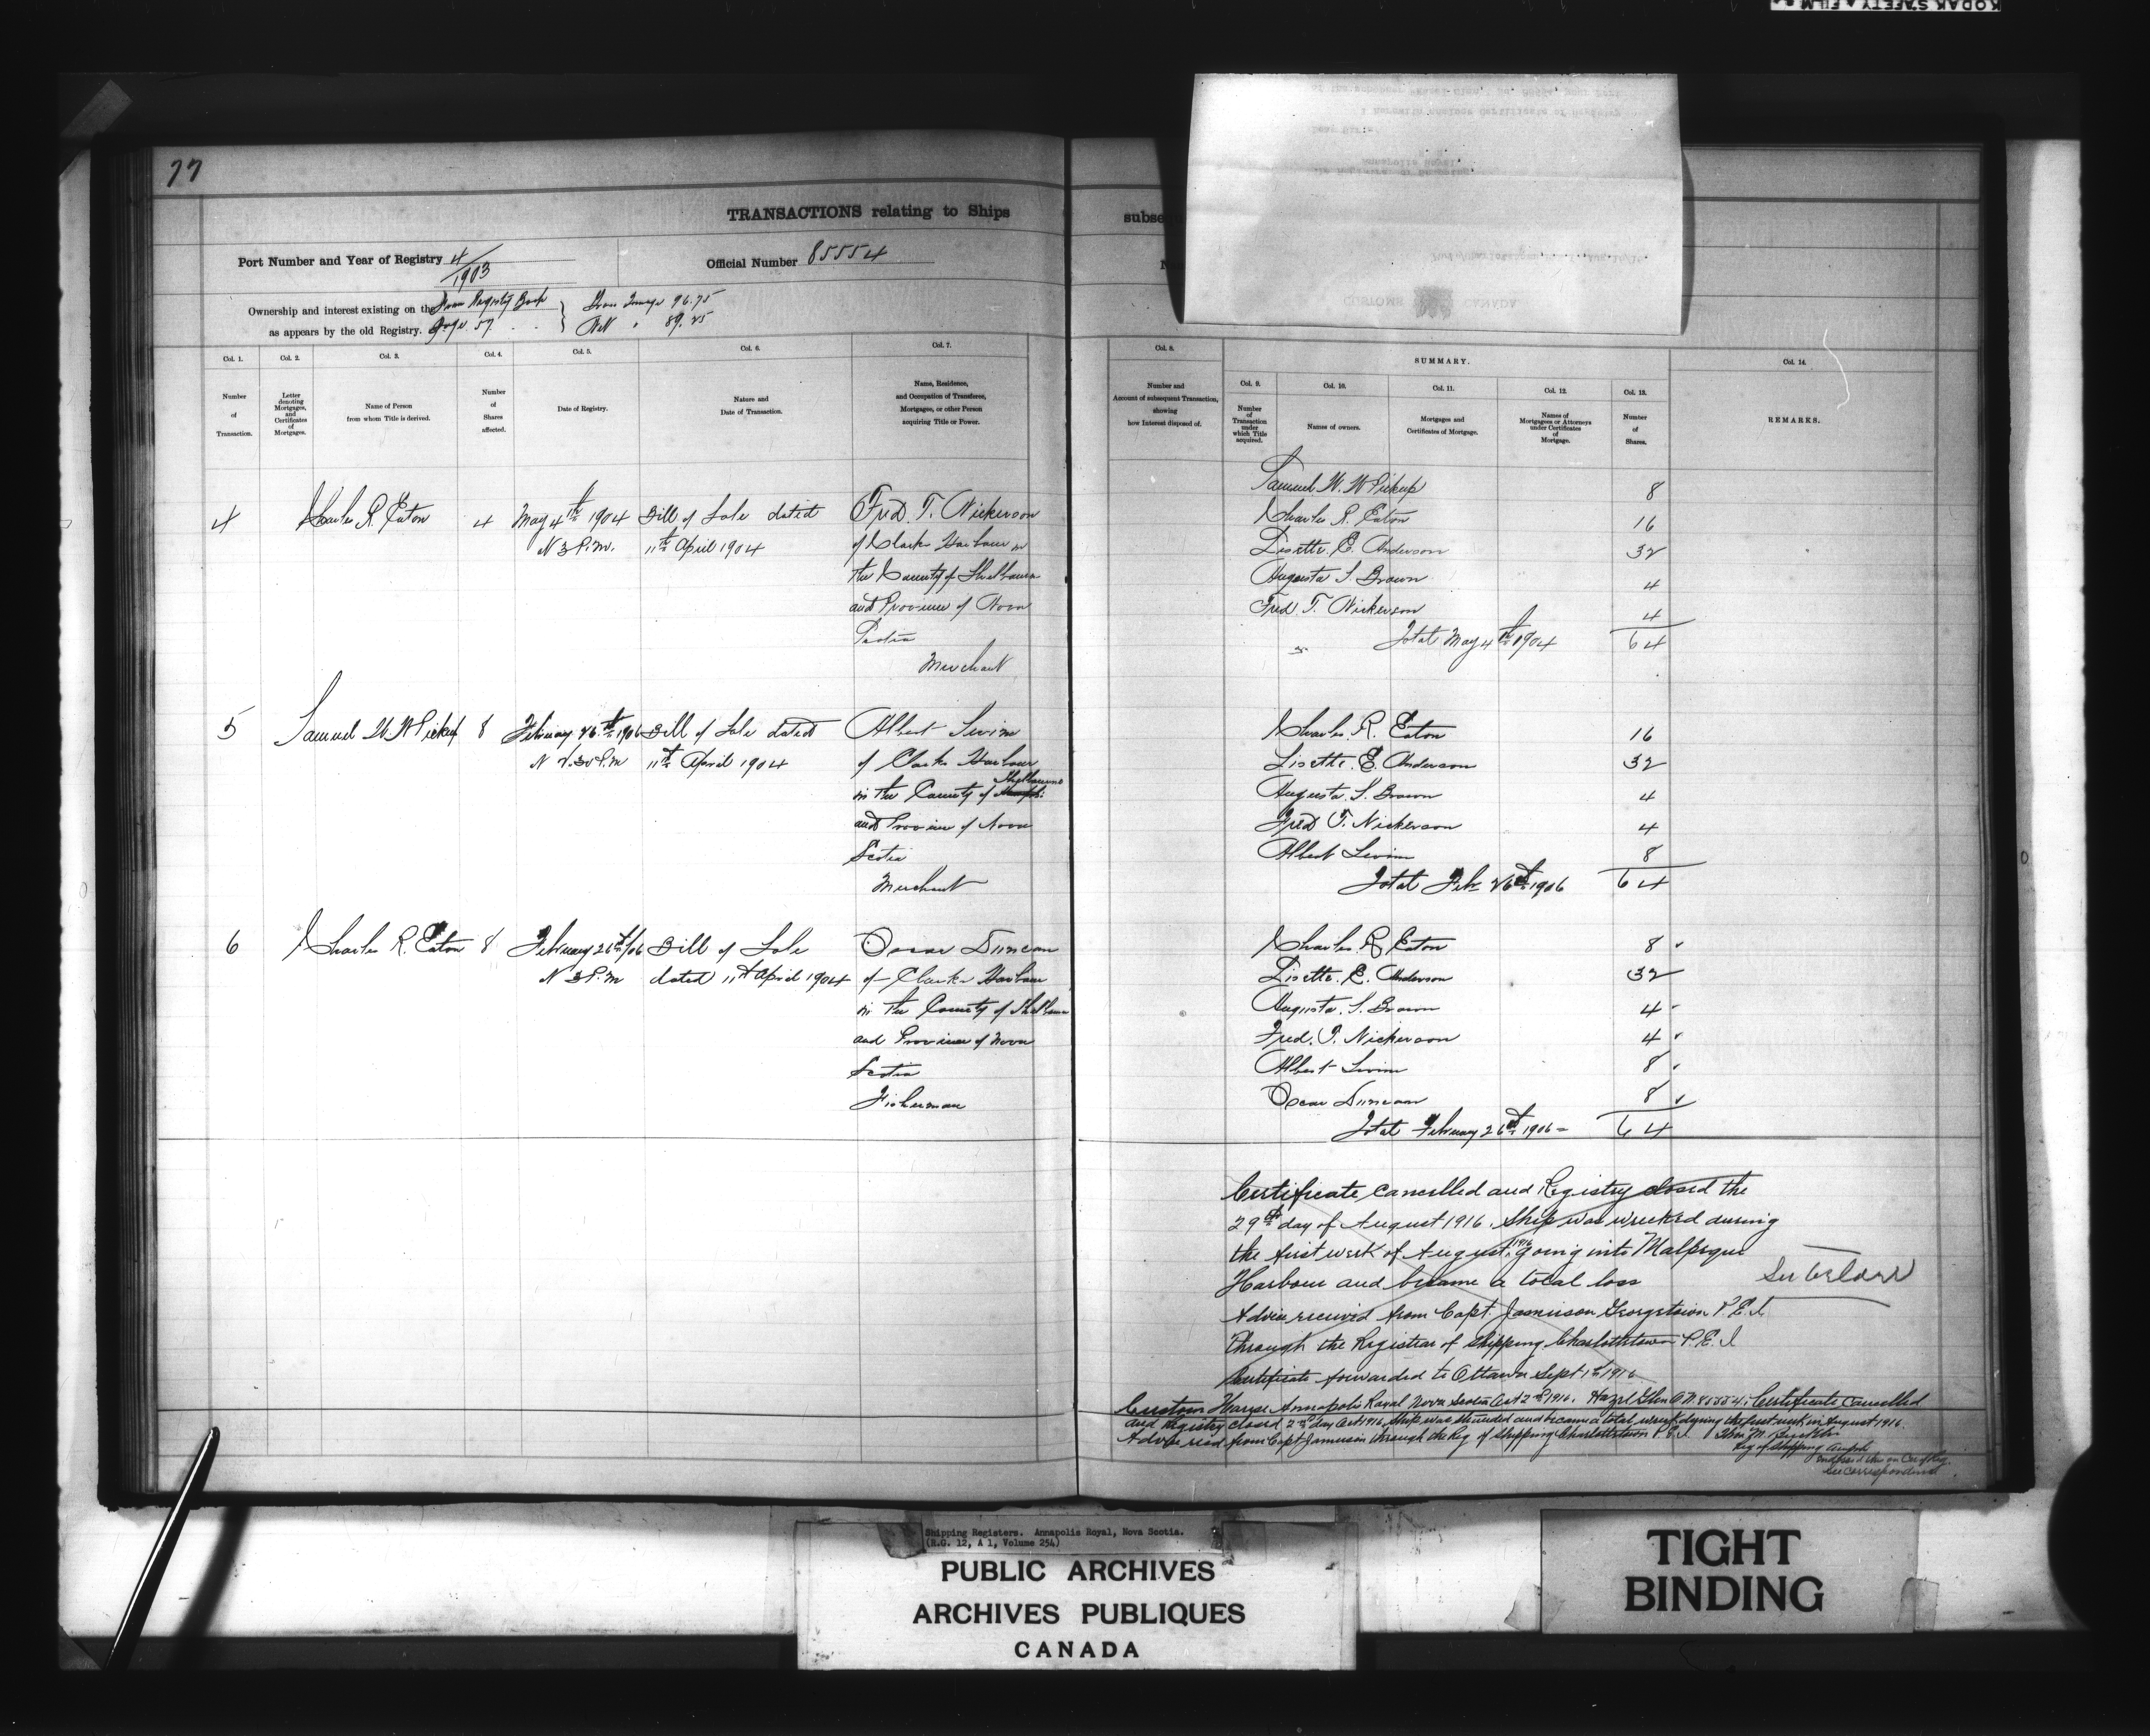 KODAK SAFETY FILM
77
TRANSACTIONS relating to Ships
subse
Port Number and Year of Registry 4/1903
Official Number 85554
Ownership and interest existing on the from Registry Book
as appears by the old Registry. Page 57.
Gross Tonnage 96.75
Nett " 89.25
CUSTOMS CANADA
Col. 1.
Number
of
Transaction.
Col. 2.
Letter
denoting
Mortgages,
and
Certificates
of
Mortgages.
Col. 3.
Name of Person
from whom Title is derived.
Col. 4.
Number
of
Shares
affected.
Col. 5.
Date of Registry.
Col. 6.
Nature and
Date of Transaction.
Col. 7.
Name, Residence,
and Occupation of Transferee,
Mortgagee, or other Person
acquiring Title or Power.
Col. 8.
Number and
Amount of subsequent Transaction,
showing
how Interest disposed of.
SUMMARY.
Col. 9.
Number
of
Transaction
under
which Title
acquired.
Col. 10.
Names of owners.
Col. 11.
Mortgages and
Certificates of Mortgage.
Col. 12.
Names of
Mortgagees or Attorneys
under Certificates
of
Mortgage.
Col. 13.
Number
of
Shares.
Col. 14.
REMARKS.
4 Charles R. Eaton 4 May 4th 1904 Bill of Sale dated Fred. T. Nickerson
3 P.m. 11th April 1904 of Clarks Harbour in
the County of Shelburne
and Province of Nova
Scotia
Merchant
Samuel W. W Pickup 8
Charles R. Eaton 16
Lisette. E. Anderson 32
Augusta S. Brown 4
Fred. T. Nickerson 4
Total May 4th 1904 64
5 Samuel W W Pickup 8 February 26th 1906 Bill of Sale dated Albert Swim
2.30 P.m 11th April 1904 of Clarks Harbour
in the County of Shelburne
and Province of Nova
Scotia
Merchant
Charles R. Eaton 16
Lisette. E. Anderson 32
Augusta. S. Brown 4
Fred T. Nickerson 4
Albert Swim 8
Total Feb 26th 1906 64
6 Charles R. Eaton 8 February 26th/06 Bill of Sale Oscar Duncan
3 P.m dated 11th April 1904 of Clarks Harbour
in the County of Shelburne
and Province of Nova
Scotia
Fisherman
Charles R Eaton 8
Lisette. E. Anderson 32
Augusta. S. Brown 4
Fred. T. Nickerson 4
Albert Swim 8
Oscar Duncan 8
Total February 26th 1906 = 64
Certificate cancelled and Registry closed the
29th day of August 1916. Ship was wrecked during
the first week of August, 1916 going into Malpeque
Harbour and became a total loss
See below
Advice received from Capt. Jamieson Georgetown P.E.I.
through the Registrar of Shipping Charlottetown P.E.I
Certificate forwarded to Ottawa Sept 1st 1916
Custom House Annapolis Royal Nova Scotia Oct 2nd 1916. Hazel Glen O.N. 85554. Certificate Cancelled
and Registry closed 2nd day Oct 1916, Ship was stranded and became a total wreck during the first week in August 1916.
Advice recd from Capt Jamieson through the Reg of Shipping Charlottetown P.E.I.
Reg of Shipping
See correspondence
Shipping Registers. Annapolis Royal, Nova Scotia.
(R.G. 12, A 1, Volume 254)
PUBLIC ARCHIVES
ARCHIVES PUBLIQUES
CANADA
TIGHT
BINDING